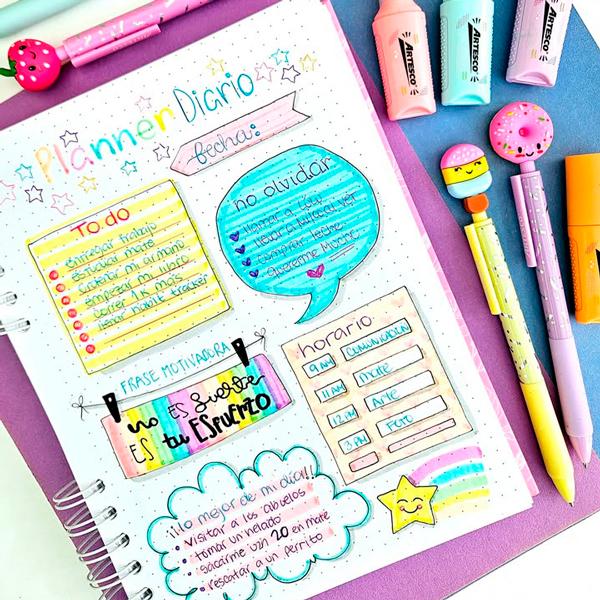 Planner Diario
fecha:
To do
Entregar trabajo
Estudiar mate
Ordenar mi armario
Empezar mi libro
Correr 1K más
llevar habit tracker
no olvidar
llamar a
comprar leche
quererme mucho
FRASE MOTIVADORA
no ES suerte
ES tu ESFUERZO
horario
9 AM COMUNICACIÓN
11 AM Mate
12 PM Arte
3 PM Foto
¡¡lo mejor de mi día!!
visitar a los abuelos
tomar un helado
sacarme un 20 en mate
rescatar a un perrito
ARTESCO
ARTESCO
ARTESCO